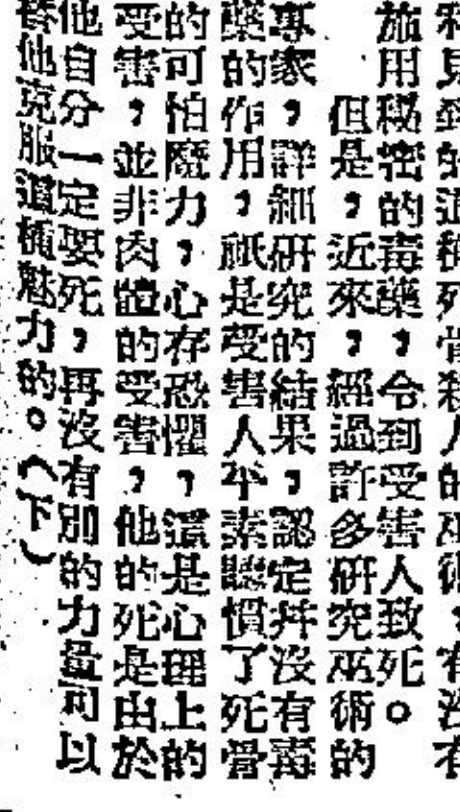 施用秘密的毒藥,令到受害人致死。
但是,近來,經過許多研究巫術的
專家,詳細研究的結果,認定幷沒有毒
藥的作用,祇是受害人平素聽慣了死骨
的可怕魔力,心存恐懼,這是心理上的
受害,並非肉體的受害,他的死是由於
他自分一定要死,再沒有別的力量可以
替他克服這種魅力的。(下)